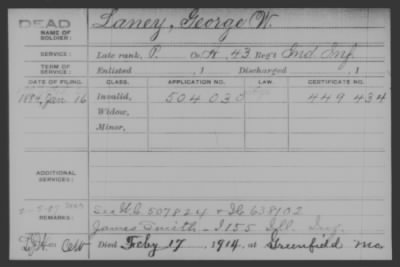 DEAD
NAME OF SOLDIER: Laney, George W.
SERVICE: Late rank, P. Co. H, 43 Reg't Ind. Inf.
TERM OF SERVICE: Enlisted , 1 Discharged , 1
DATE OF FILING. CLASS. APPLICATION NO. LAW. CERTIFICATE NO.
1884 Jan 16 Invalid, 504 030 449 434
Widow,
Minor,
ADDITIONAL SERVICES:
REMARKS: See W.C. 507824 & Ib 638102
James Smith - I 155 Ill. Inf.
Died Feby 17, 1914, at Greenfield Mo.